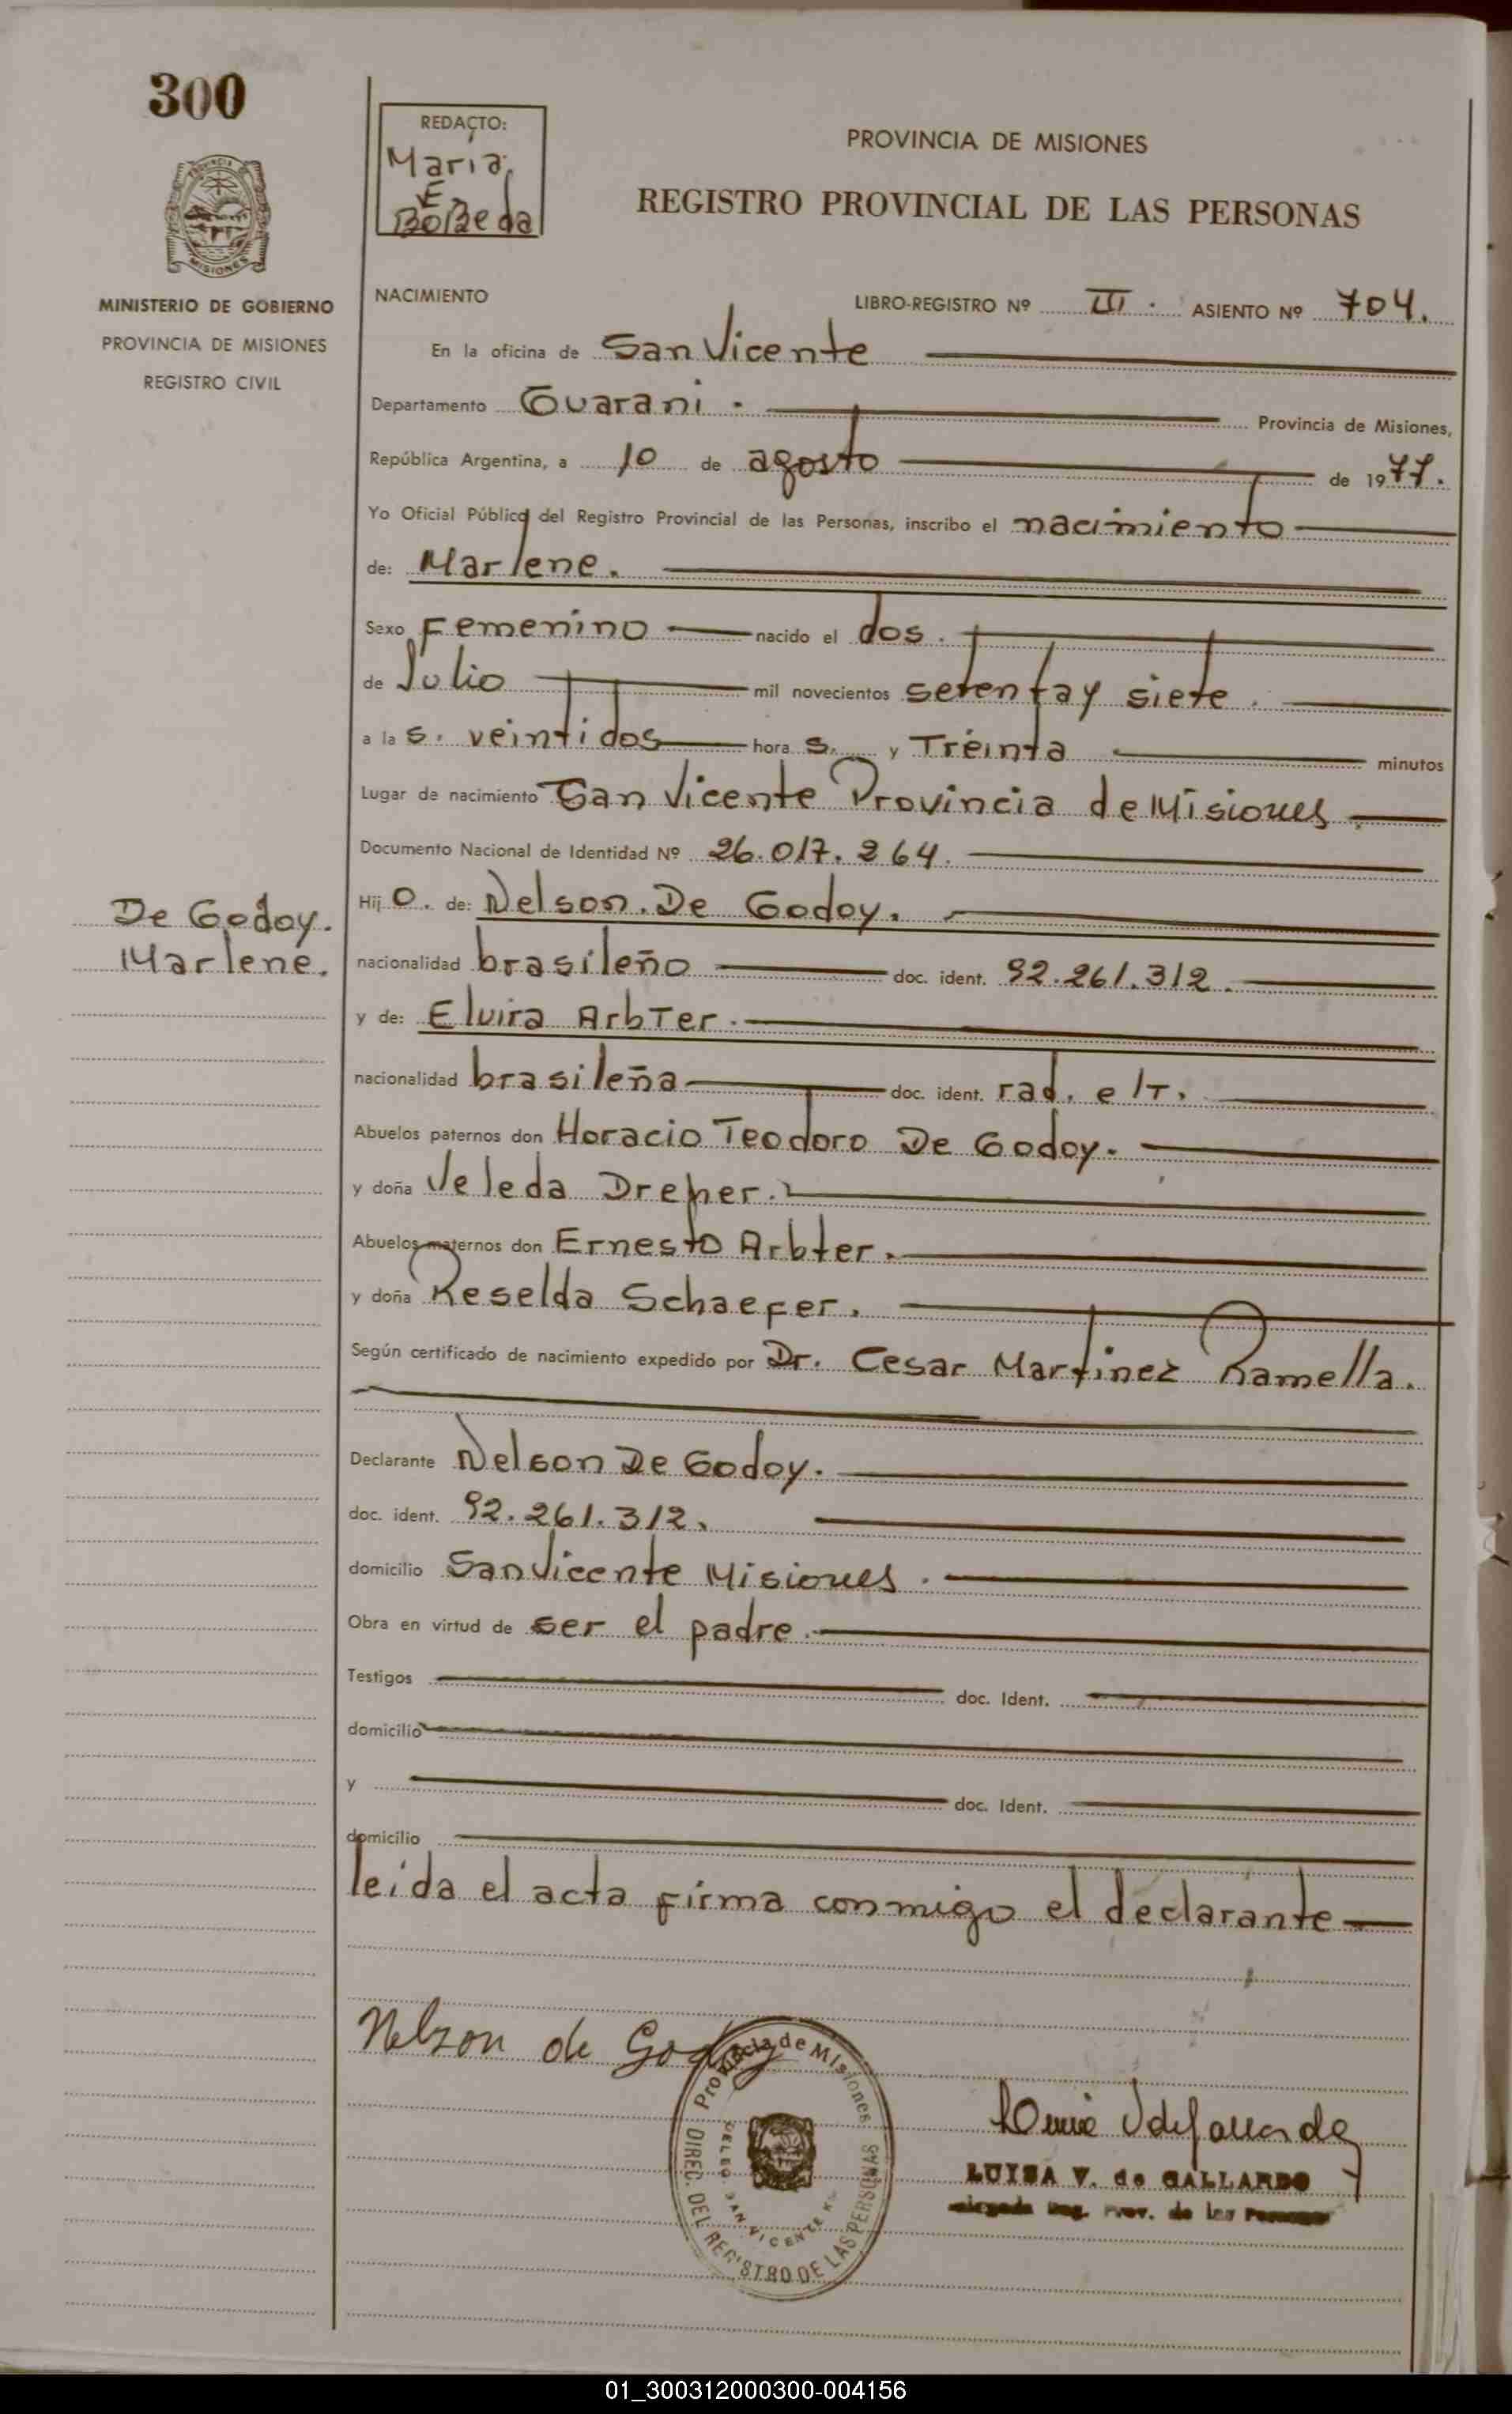 300
REDACTO:
Maria
E.
BoBeda
PROVINCIA DE MISIONES
REGISTRO PROVINCIAL DE LAS PERSONAS
PROVINCIA
MISIONES
MINISTERIO DE GOBIERNO
PROVINCIA DE MISIONES
REGISTRO CIVIL
NACIMIENTO LIBRO-REGISTRO Nº III. ASIENTO Nº 704.
En la oficina de San Vicente
Departamento Guarani. Provincia de Misiones,
República Argentina, a 10 de agosto de 1977.
Yo Oficial Público del Registro Provincial de las Personas, inscribo el nacimiento
de: Marlene.
Sexo Femenino nacido el dos.
de Julio mil novecientos setenta y siete.
a la s. veintidos hora s. y Treinta minutos
Lugar de nacimiento San Vicente Provincia de Misiones.
Documento Nacional de Identidad Nº 26.017.264.
De Godoy.
Marlene.
Hij o. de: Nelson. De Godoy.
nacionalidad brasileño doc. ident. 92.261.312.
y de: Elvira ArbTer.
nacionalidad brasileña doc. ident. rad. e IT.
Abuelos paternos don Horacio Teodoro De Godoy.
y doña Veleda Dreher.
Abuelos maternos don Ernesto Arbter.
y doña Reselda Schaefer.
Según certificado de nacimiento expedido por Dr. Cesar Martinez Ramella.
Declarante Nelson De Godoy.
doc. ident. 92.261.312.
domicilio San Vicente Misiones.
Obra en virtud de ser el padre.
Testigos doc. Ident.
domicilio
y doc. Ident.
domicilio
leida el acta firma conmigo el declarante
Nelson de Godoy
Provincia de Misiones
DIREC. DEL REGISTRO DE LAS PERSONAS
DELEG. SAN VICENTE
LUISA V. de GALLARDO
Reg. Prov. de las Personas
01_300312000300-004156